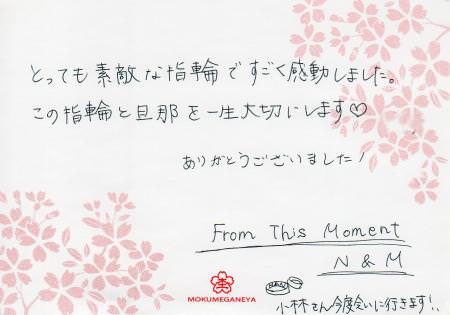 とっても素敵な指輪ですごく感動しました。
この指輪と旦那を一生大切にします♡
ありがとうございました！
From This Moment
N & M
MOKUMEGANEYA
小林さん今度会いに行きます！！